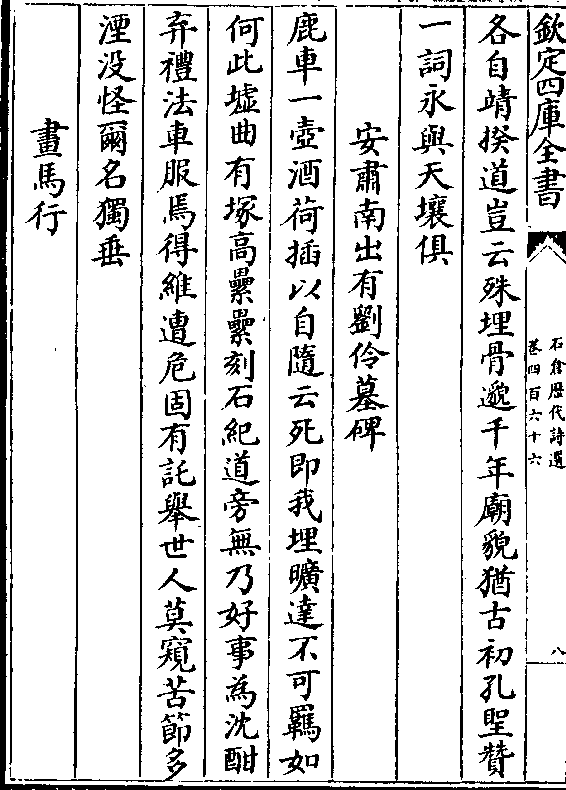 欽定四庫全書
石倉歷代詩選
卷四百六十六
八
各自靖揆道豈云殊埋骨邈千年廟貌猶古初孔聖贊
一詞永與天壤俱
安肅南出有劉伶墓碑
鹿車一壺酒荷插以自隨云死即我埋曠達不可羈如
何此墟曲有塚高纍纍刻石紀道旁無乃好事為沈酣
弃禮法車服焉得維遭危固有託舉世人莫窺苦節多
湮没怪爾名獨垂
畫馬行